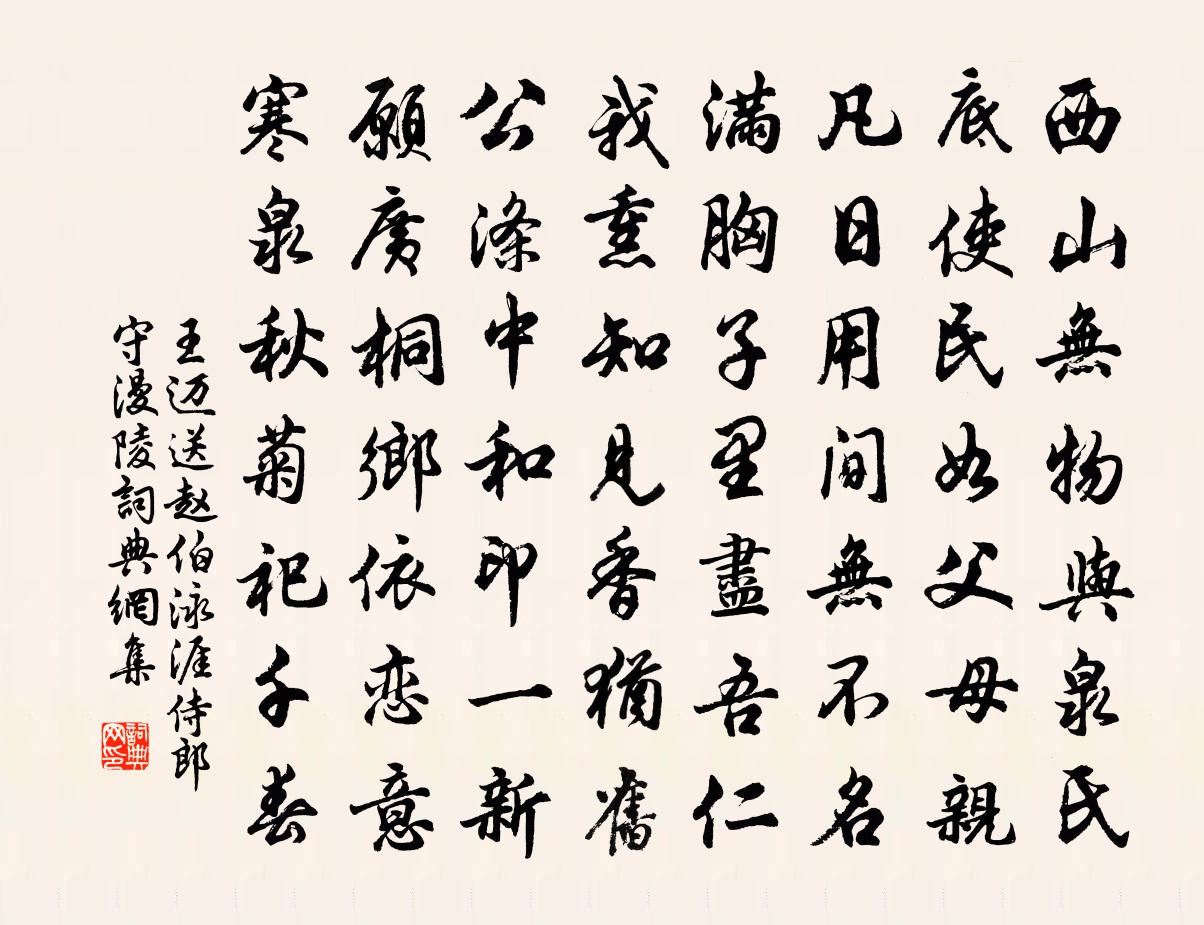 西山無物與泉民
底使民如父母親
凡日用間無不名
滿胸子里盡吾仁
我熏知見香猶舊
公滌中和印一新
願廣桐鄉依恋意
寒泉秋菊祀千春
王迈送赵伯泳涯侍郎
守漫陵詞典網集
詞典
网印